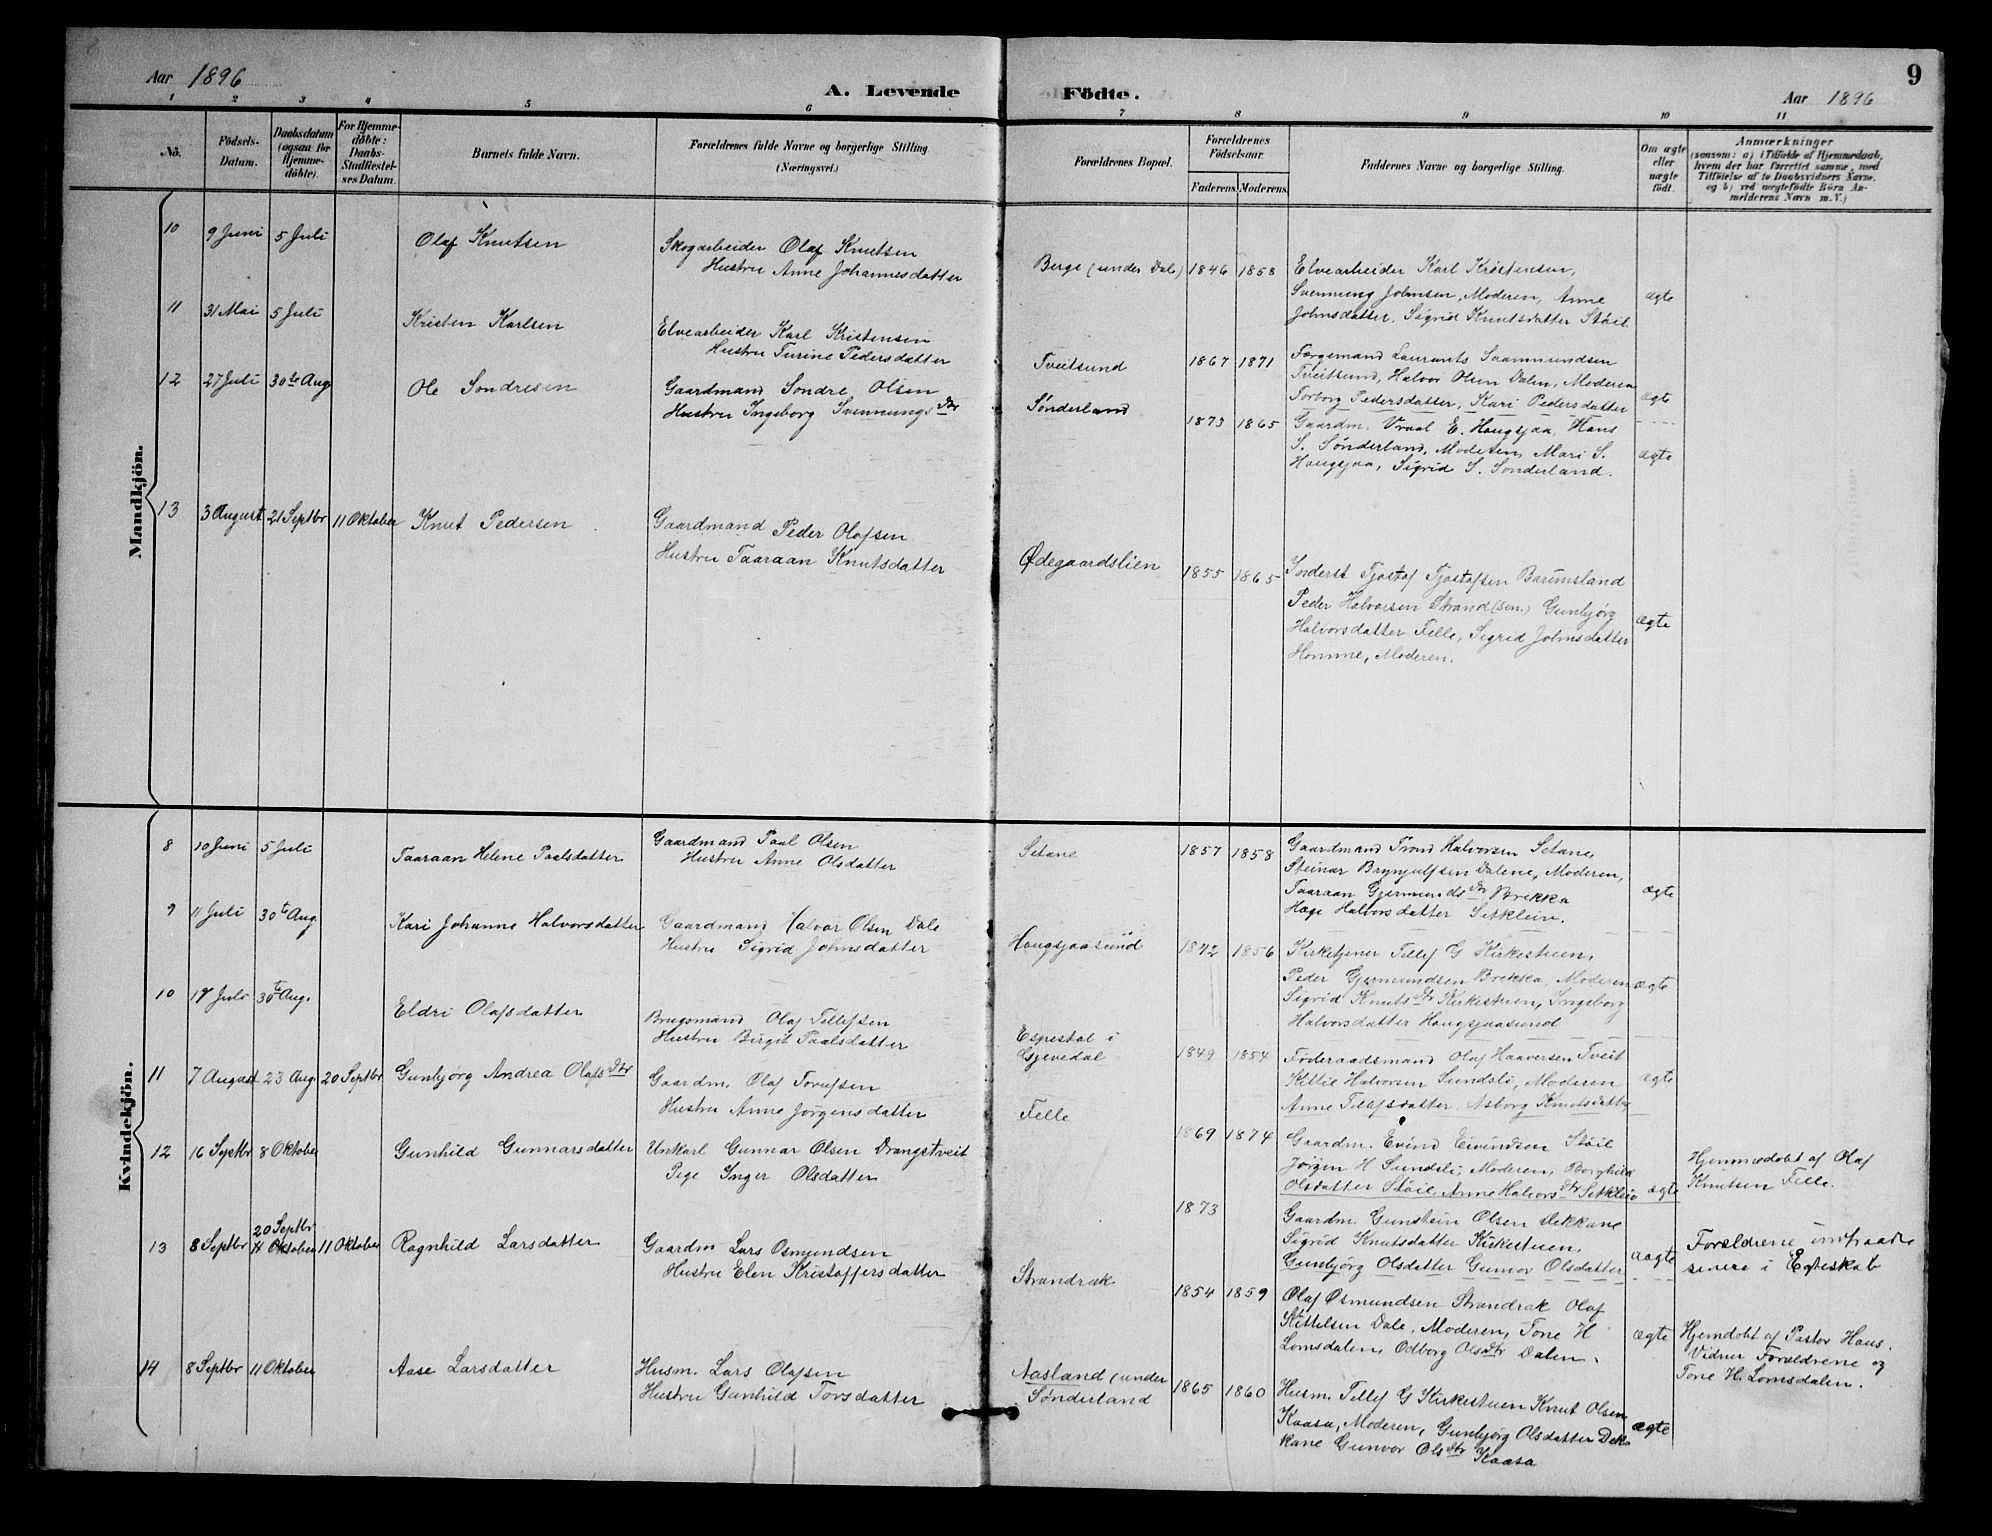 Aar 1896
A. Levende
Födte.
9
Aar 1896
1 2 3 4 5 6 7 8 9 10 11
No.
Födsels-
Datum.
Daabsdatum
(ogsaa for
Hjemme-
döbte).
For Hjemme-
döbte:
Daabs-
Stadfestel-
ses Datum.
Barnets fulde Navn.
Forældrenes fulde Navne og borgerlige Stilling
(Næringsvei.)
Forældrenes Bopæl.
Forældrenes
Födselsaar.
Faderens. Moderens.
Faddernes Navne og borgerlige Stilling.
Om ægte
eller
uægte
födt.
Anmærkninger
(saasom: a) i Tilfælde af Hjemmedaab,
hvem der har forrettet samme, med
Tilföielse af to Daabsvidners Navne,
og b) ved uægtefödte Börn An-
melderens Navn m. V.)
Mandkjön.
10 9 Juni 5 Juli Olaf Knutsen
Skogarbeider Olaf Knutsen
Hustru Anne Johannesdatter
Berge (under Dale) 1846 1858
Elvearbeider Karl Kristensen,
Svennung Johnsen, Moderen, Anne
Johnsdatter, Sigrid Knutsdatter Støil.
ægte
11 31 Mai 5 Juli Kristen Karlsen
Elvearbeider Karl Kristensen
Hustru Turine Pedersdatter
Tveitsund 1867 1871
Færgemand Laurants Saamundsen
Tveitsund, Halvor Olsen Dalen, Moderen
Torborg Pedersdatter, Kari Pedersdatter
ægte
12 27 Juli 30te Aug Ole Sondresen
Gaardmand Sondre Olsen
Hustru Ingeborg Svennungsdtr
Sønderland 1873 1865
Gaardm. Vraal E. Haugsjaa, Hans
S. Sønderland, Moderen, Mari S.
Haugsjaa, Sigrid S. Sønderland.
ægte
13 3 August 21 Septbr 11 Oktober Knut Pedersen
Gaardmand Peder Olafsen
Hustru Taaraan Knutsdatter
Ødegaardslien 1855 1865
Inderst Tjostaf Tjostafsen Barumsland
Peder Halvorsen Strand (sen.) Gunbjørg
Halvorsdatter Felle, Sigrid Johnsdatter
Homme, Moderen.
ægte
Kvindekjön.
8 10 Juni 5 Juli Taaraan Helene Paalsdatter
Gaardmand Paal Olsen
Hustru Anne Olsdatter
Setane 1857 1858
Gaardmand Trond Halvorsen Setane,
Steinar Brynjulfsen Dalene, Moderen,
Taaraan Gjermundsdtr Brekka
Hæge Halvorsdatter Sitkleiv.
ægte
9 11 Juli 30te Aug. Kari Johanne Halvorsdatter
Gaardmand Halvor Olsen Dale
Hustru Sigrid Johnsdatter
Haugsjaasund 1842 1856
Kirketjener Tellef G Kirkestuen,
Peder Gjermundsen Brekka, Moderen
Sigrid Knutsdtr Kirkestuen, Ingeborg
Halvorsdatter Haugsjaasund
ægte
10 17 Juli 30te Aug. Eldri Olafsdatter
Brugsmand Olaf Tellefsen
Hustru Birgit Paalsdatter
Espestøl i
Gjevedal
1849 1854
Føderaadsmand Olaf Haaversen Tveit
Kittil Halvorsen Sundsli, Moderen
Anne Tellefsdatter, Asborg Knutsdatter
ægte
11 7 August 23 Aug. 20 Septbr Gunbjørg Andrea Olafsdtr
Gaardm. Olaf Torufsen
Hustru Anne Jørgensdatter
Felle
1869 1874
Gaardm. Evind Eivindsen Støil
Jørgen H Sundsli, Moderen, Borghild
Olsdatter Støil, Anne Halvorsdtr Sitkleiv
ægte
Hjemmedøbt af Olaf
Knutsen Felle.
12 16 Septbr 8 Oktober Gunhild Gunnarsdatter
Unkarl Gunnar Olsen Drangstveit
Pige Inger Olsdatter
1873
Gaardm. Gunstein Olsen Dekkane
Sigrid Knutsdatter Kirkestuen,
Gunbjørg Olsdatter Gunvor Olsdatter
uægte
Forældrene indtraadte
senere i Egteskab
13 8 Septbr 20 Septbr 11 Oktober 11 Oktober Ragnhild Larsdatter
Gaardm Lars Osmundsen
Hustru Elen Kristoffersdatter
Strandrak
1854 1859
Olaf Osmundsen Strandrak Olaf
Kittelsen Dale, Moderen, Tone H
Lomsdalen, Odborg Olsdtr Dalen.
ægte
Hjemdøbt af Pastor Hans.
Vidner Forældrene og
Tone H. Lomsdalen.
14 8 Septbr 11 Oktober Aase Larsdatter
Husm. Lars Olafsen
Hustru Gunhild Torsdatter
Aasland (under
Sønderland
1865 1860
Husm. Tellef G Kirkestuen Knut Olsen
Kaasa, Moderen, Gunbjørg Olsdatter Dek-
kane Gunvor Olsdtr Kaasa
ægte